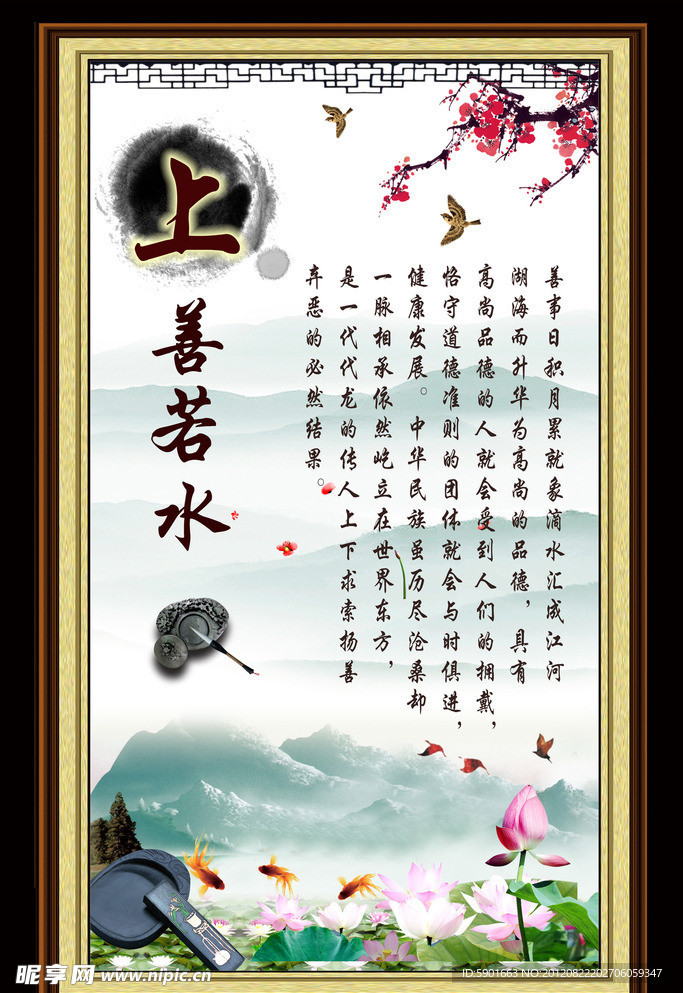 上善若水
善事日积月累就象滴水汇成江河
湖海而升华为高尚的品德，具有
高尚品德的人就会受到人们的拥戴，
恪守道德准则的团体就会与时俱进，
健康发展。中华民族虽历尽沧桑却
一脉相承依然屹立在世界东方，
是一代代龙的传人上下求索扬善
弃恶的必然结果。
昵享网 www.nipic.cn
ID:5901663 NO:20120822202706059347